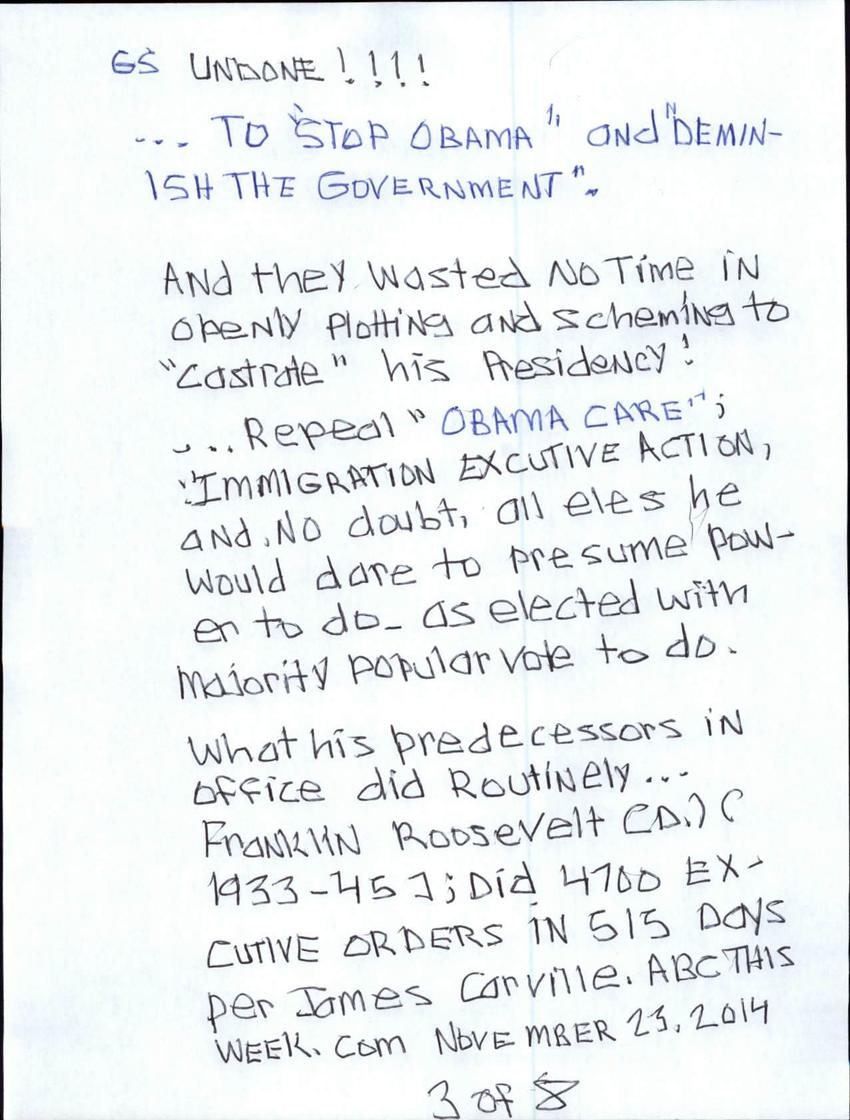 GS UNDONE!!!!
... TO "STOP OBAMA", and "DEMIN-
ISH THE GOVERNMENT".
And they wasted No Time iN
openly plotting and scheming to
"Castrate" his Presidency!
... Repeal "OBAMA CARE";
"IMMIGRATION EXCUTIVE ACTION,
and, No doubt, all eles he
would dare to presume pow-
er to do_ as elected with
majority popular vote to do.
What his predecessors iN
office did Routinely...
Franklin Roosevelt (D.) (
1933-45]; Did 4700 EX-
CUTIVE ORDERS IN 515 DAYS
per James Carville. ABC THIS
WEEK. Com NOVEMBER 23, 2014
3 of 8